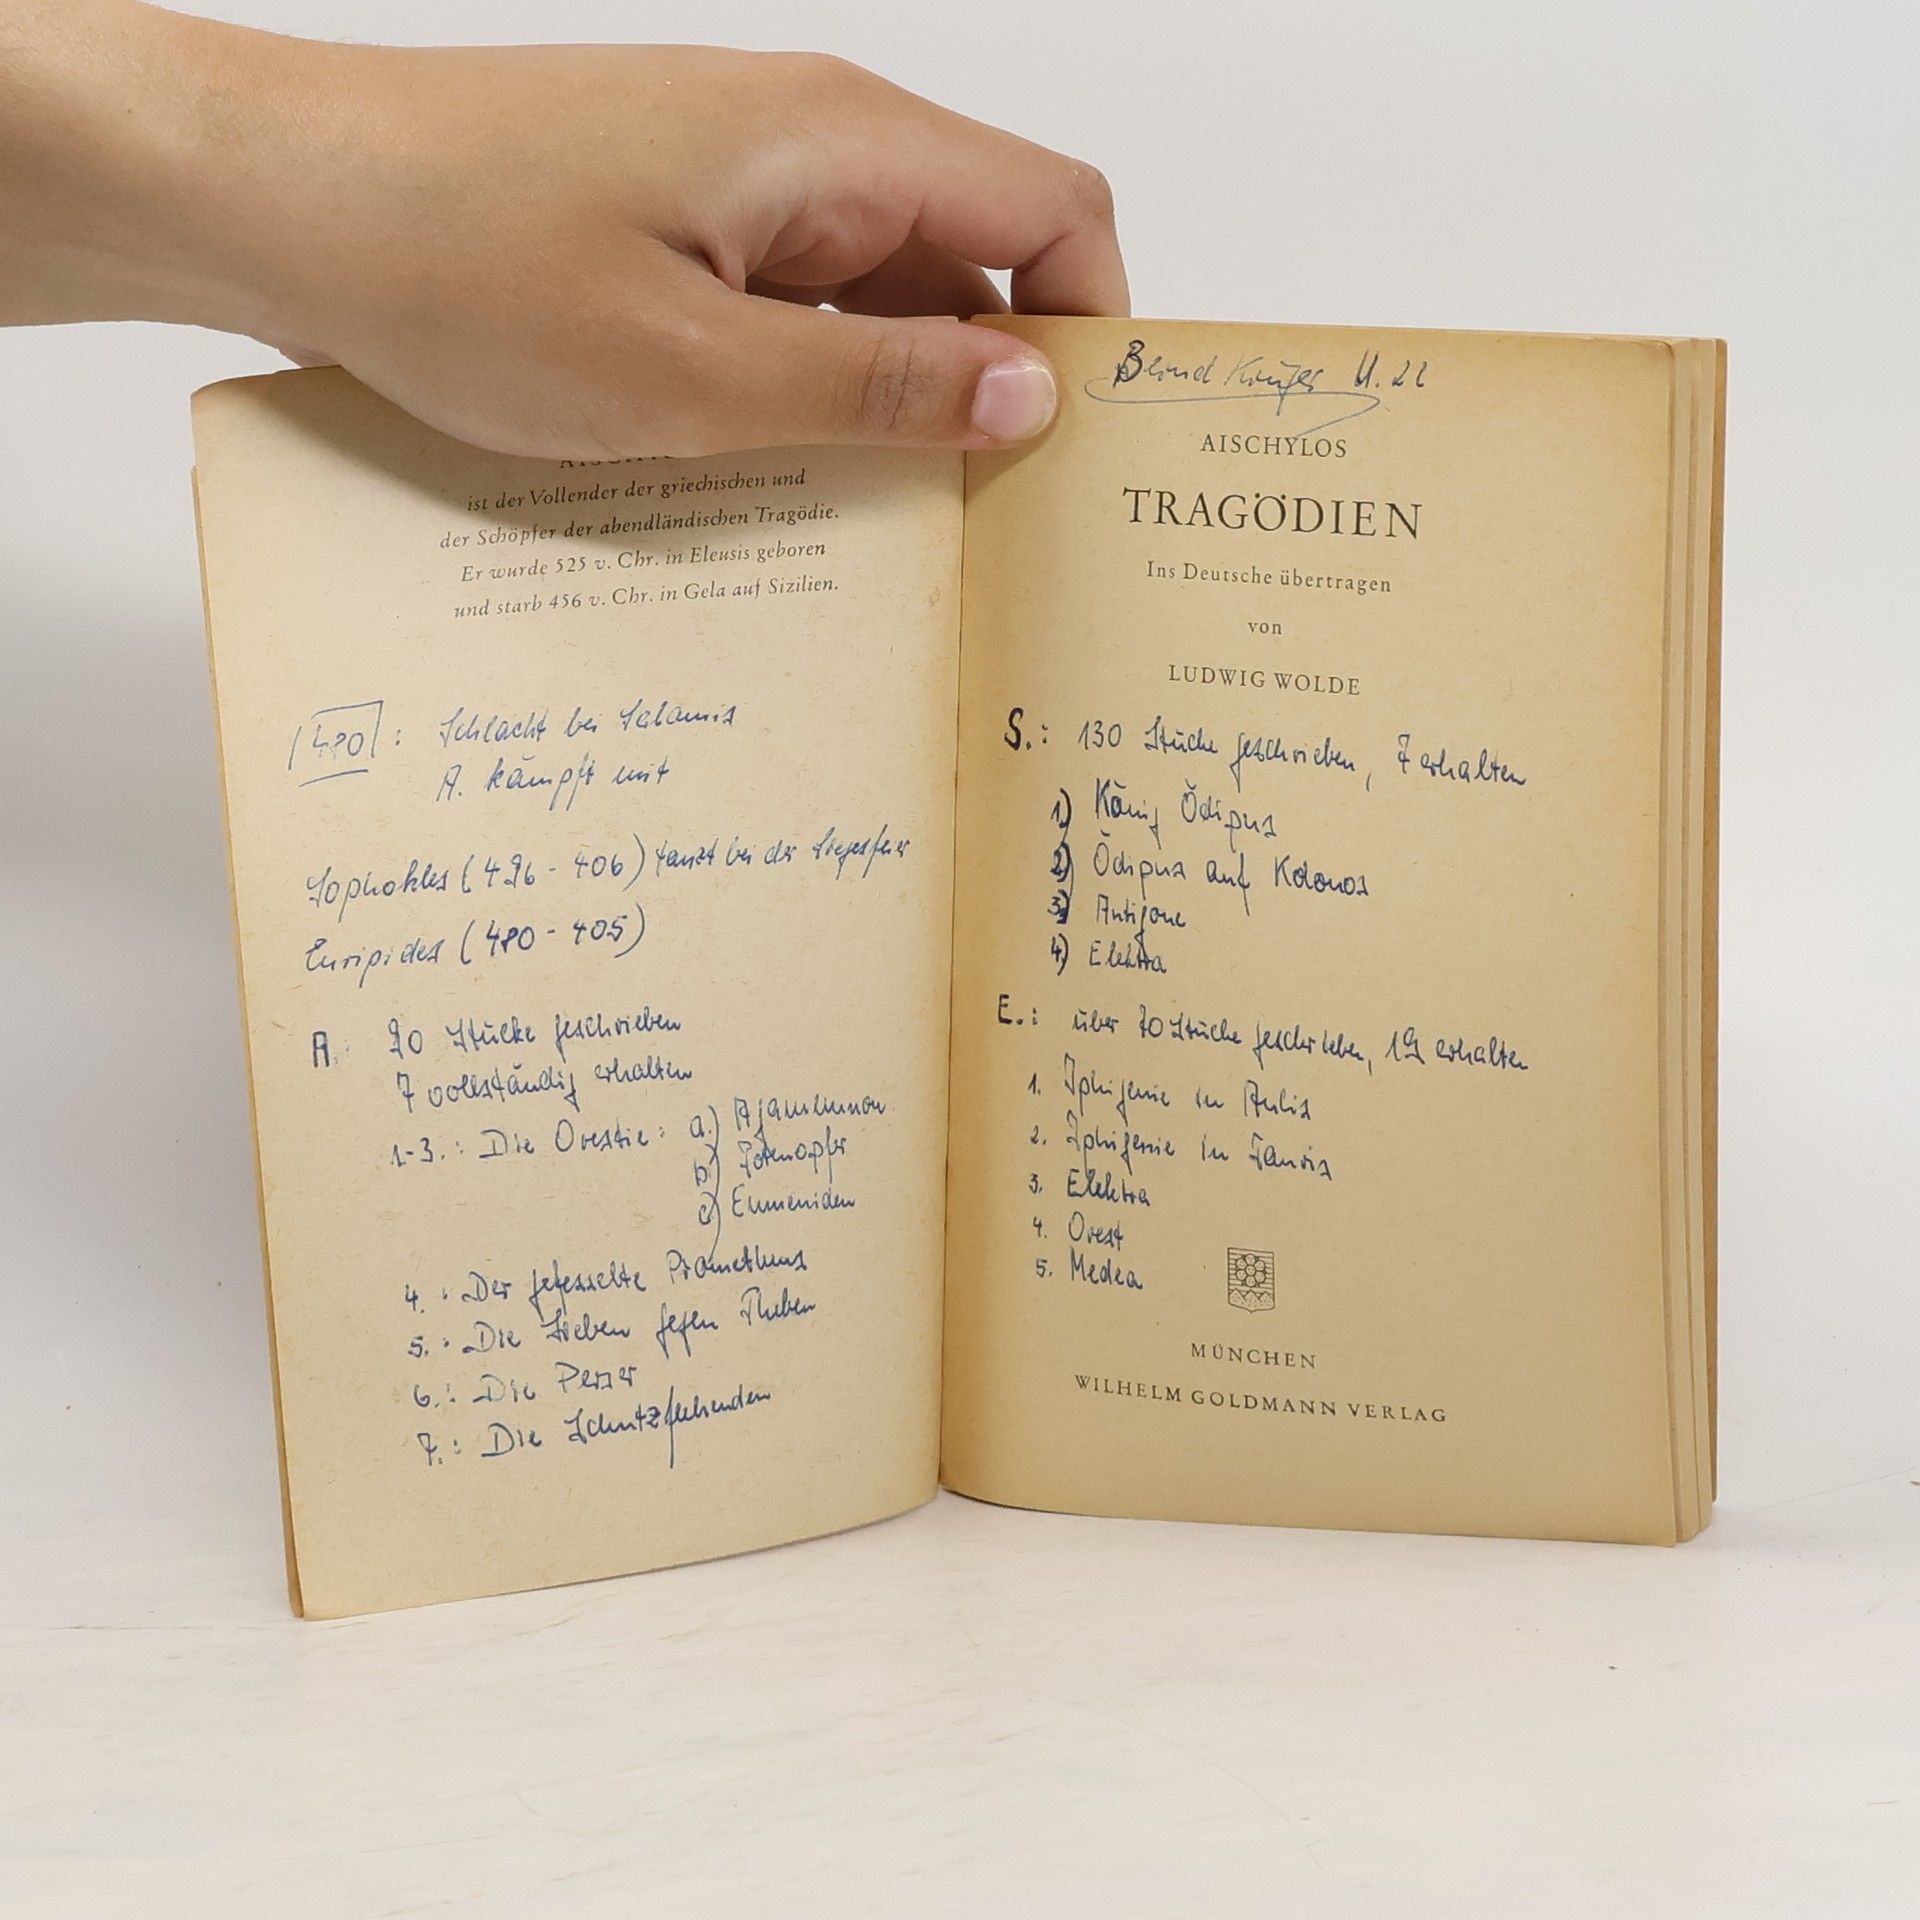 ist der Vollender der griechischen und
der Schöpfer der abendländischen Tragödie.
Er wurde 525 v. Chr. in Eleusis geboren
und starb 456 v. Chr. in Gela auf Sizilien.
480 : Schlacht bei Salamis
A. kämpft mit
Sophokles (496 - 406) tanzt bei der Siegesfeier
Euripides (480 - 405)
A.: 90 Stücke geschrieben
7 vollständig erhalten
1-3.: Die Orestie: a.) Agamemnon
b.) Totenopfer
c) Eumeniden
4.: Der gefesselte Prometheus
5.: Die Sieben gegen Theben
6.: Die Perser
7.: Die Schutzflehenden
Bernd Krüger
AISCHYLOS
TRAGÖDIEN
Ins Deutsche übertragen
von
LUDWIG WOLDE
S.: 130 Stücke geschrieben, 7 erhalten
1) König Ödipus
2) Ödipus auf Kolonos
3) Antigone
4) Elektra
E.: über 70 Stücke geschrieben, 19 erhalten
1. Iphigenie in Aulis
2. Iphigenie in Tauris
3. Elektra
4. Orest
5. Medea
MÜNCHEN
WILHELM GOLDMANN VERLAG